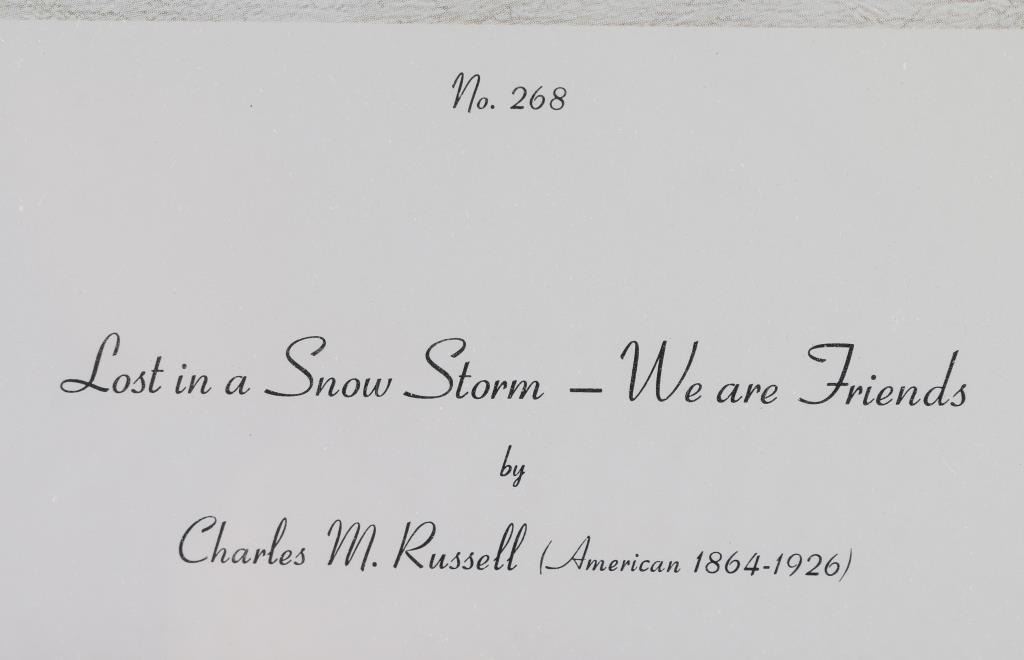 No. 268
Lost in a Snow Storm – We are Friends
by
Charles M. Russell (American 1864-1926)